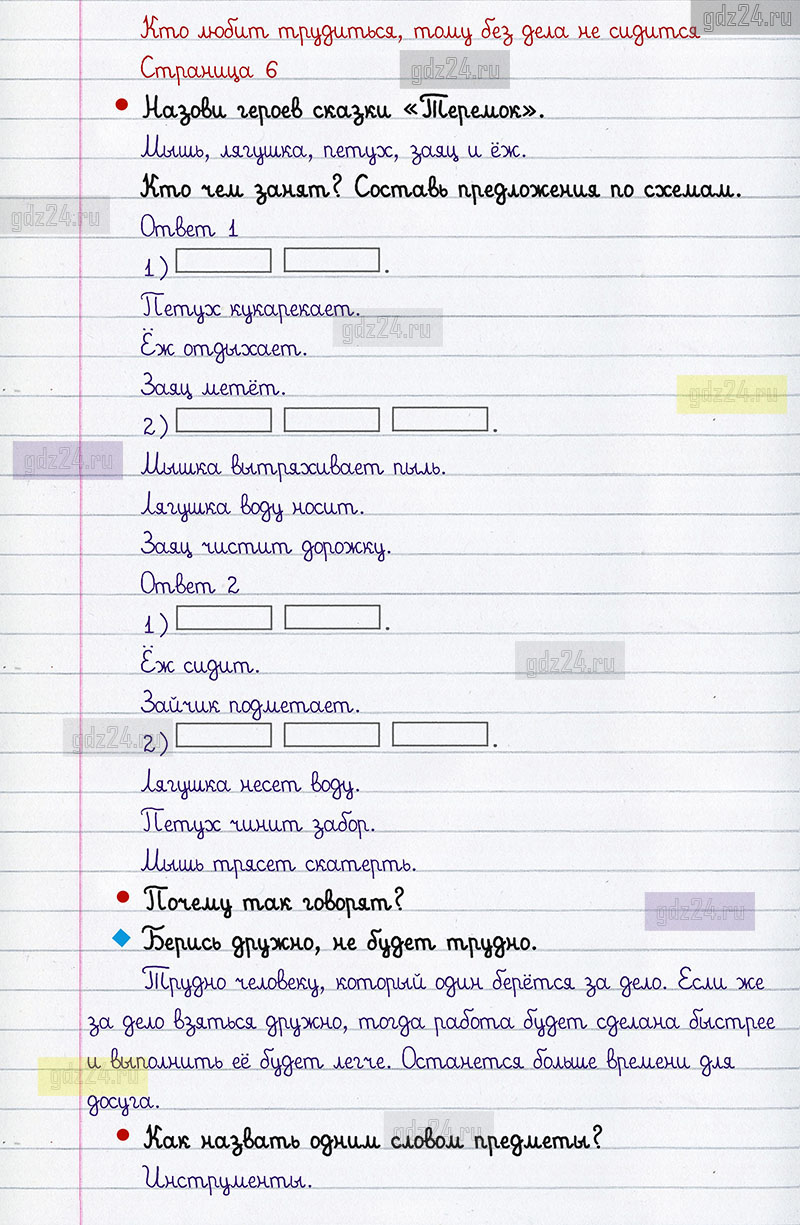 Кто любит трудиться, тому без дела не сидится
gdz24.ru
Страница 6
gdz24.ru
Назови героев сказки «Теремок».
Мышь, лягушка, петух, заяц и ёж.
Кто чем занят? Составь предложения по схемам.
gdz24.ru
Ответ 1
1) .
Петух кукарекает.
gdz24.ru
Ёж отдыхает.
Заяц метёт.
gdz24.ru
2) .
gdz24.ru
Мышка вытряхивает пыль.
Лягушка воду носит.
Заяц чистит дорожку.
Ответ 2
1) .
Ёж сидит.
gdz24.ru
Зайчик подметает.
gdz24.ru
2) .
Лягушка несет воду.
Петух чинит забор.
Мышь трясет скатерть.
Почему так говорят?
gdz24.ru
Берись дружно, не будет трудно.
Трудно человеку, который один берётся за дело. Если же
за дело взяться дружно, тогда работа будет сделана быстрее
и выполнить её будет легче. Останется больше времени для
gdz24.ru
досуга.
gdz24.ru
Как назвать одним словом предметы?
Инструменты.